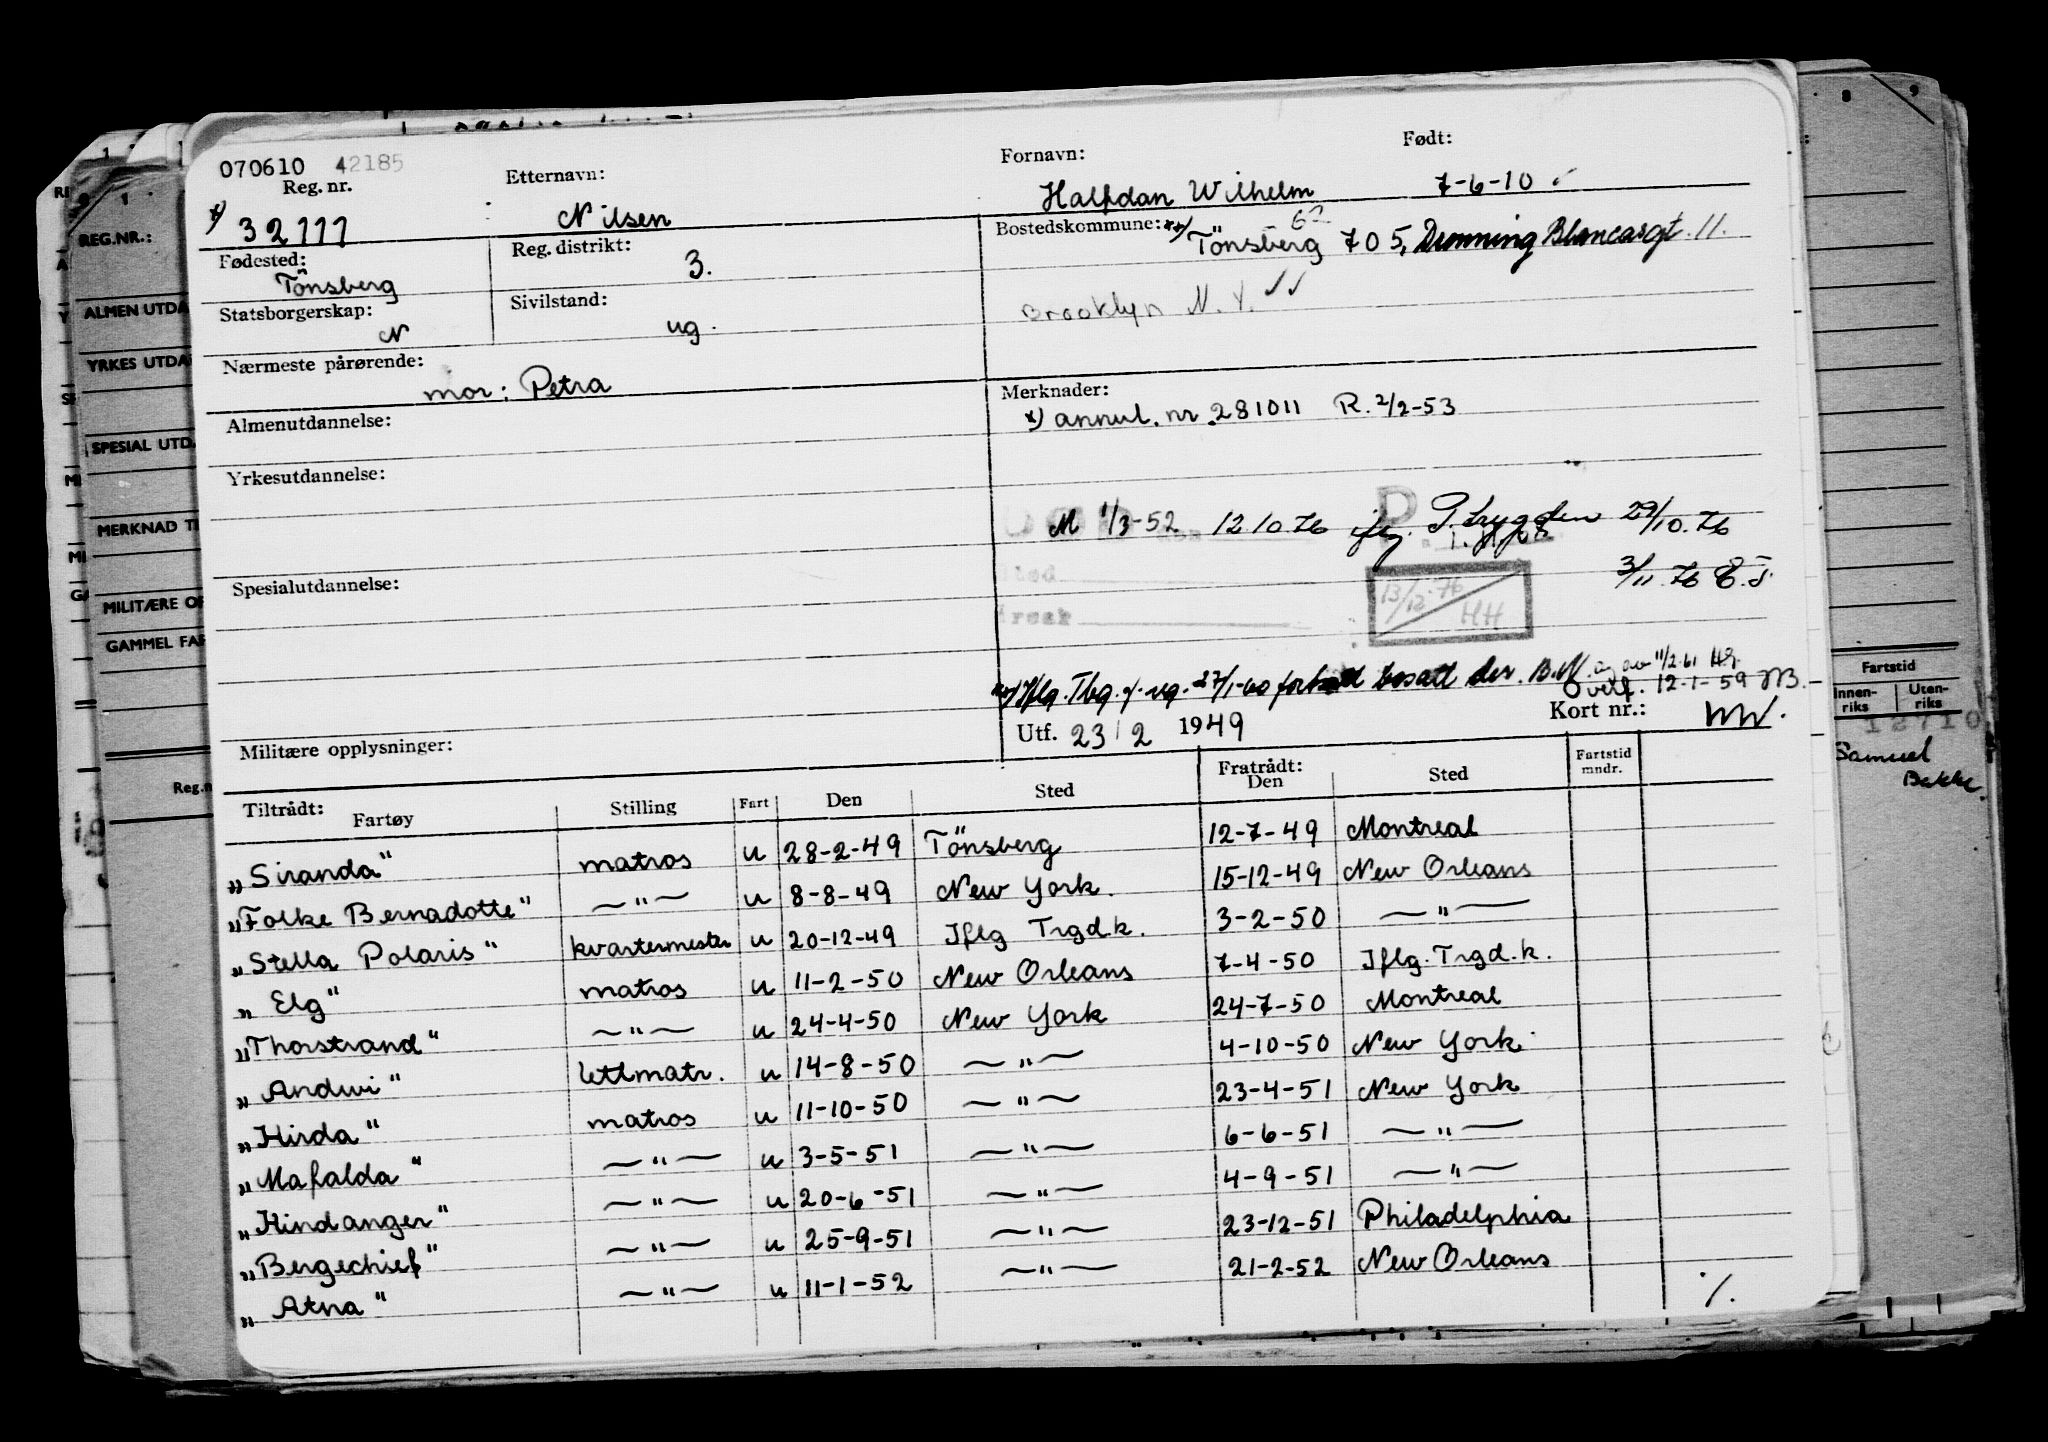 070610 42185
Reg. nr. Etternavn: Fornavn: Født:
*) 32777 Nilsen Halfdan Wilhelm 7-6-10
Fødested: Reg. distrikt: Bostedskommune: **)
Tönsberg 3. Tönsberg 705, Dronning Blancasgt. 11.
Statsborgerskap: Sivilstand:
N ug. Brooklyn N.Y.
Nærmeste pårørende:
mor: Petra
Merknader:
*) annul. nr. 281011 R. 2/2-53
Almenutdannelse:
Yrkesutdannelse:
M 1/3-52 12 10 76 iflg. P. trygden 29/10.76
3/11.76
Spesialutdannelse:
13/12-76
HH
27/1-60 fortsatt bosatt der. B.N. 11/2-61
Overf. 12-1-59
Utf. 23/2 1949 Kort nr.:
Militære opplysninger:
Tiltrådt: Fratrådt:
Fartøy Stilling Fart Den Sted Den Sted Fartstid mndr.
„Siranda" matros u 28-2-49 Tönsberg 12-7-49 Montreal
„Folke Bernadotte" —"— u 8-8-49 New York. 15-12-49 New Orleans
„Stella Polaris" kvartermester u 20-12-49 Iflg Trgd.k. 3-2-50 —"—
„Elg" matros u 11-2-50 New Orleans 7-4-50 Iflg. Trgd.k.
„Thorstrand" —"— u 24-4-50 New York 24-7-50 Montreal
„Andwi" lettmatr. u 14-8-50 —"— 4-10-50 New York
„Hirda" matros u 11-10-50 —"— 23-4-51 New York
„Mafalda" —"— u 3-5-51 —"— 6-6-51 —"—
„Hindanger" —"— u 20-6-51 —"— 4-9-51 —"—
„Bergechief" —"— u 25-9-51 —"— 23-12-51 Philadelphia
„Atna" —"— u 11-1-52 —"— 21-2-52 New Orleans
REG.NR.:
ALMEN UTDA
YRKES UTDA
SPESIAL UTD
MERKNAD TI
MILITÆRE OP
GAMMEL FAR
Reg.n
8 9
Fartstid
Innen-riks Uten-riks
Samuel
Bakke.